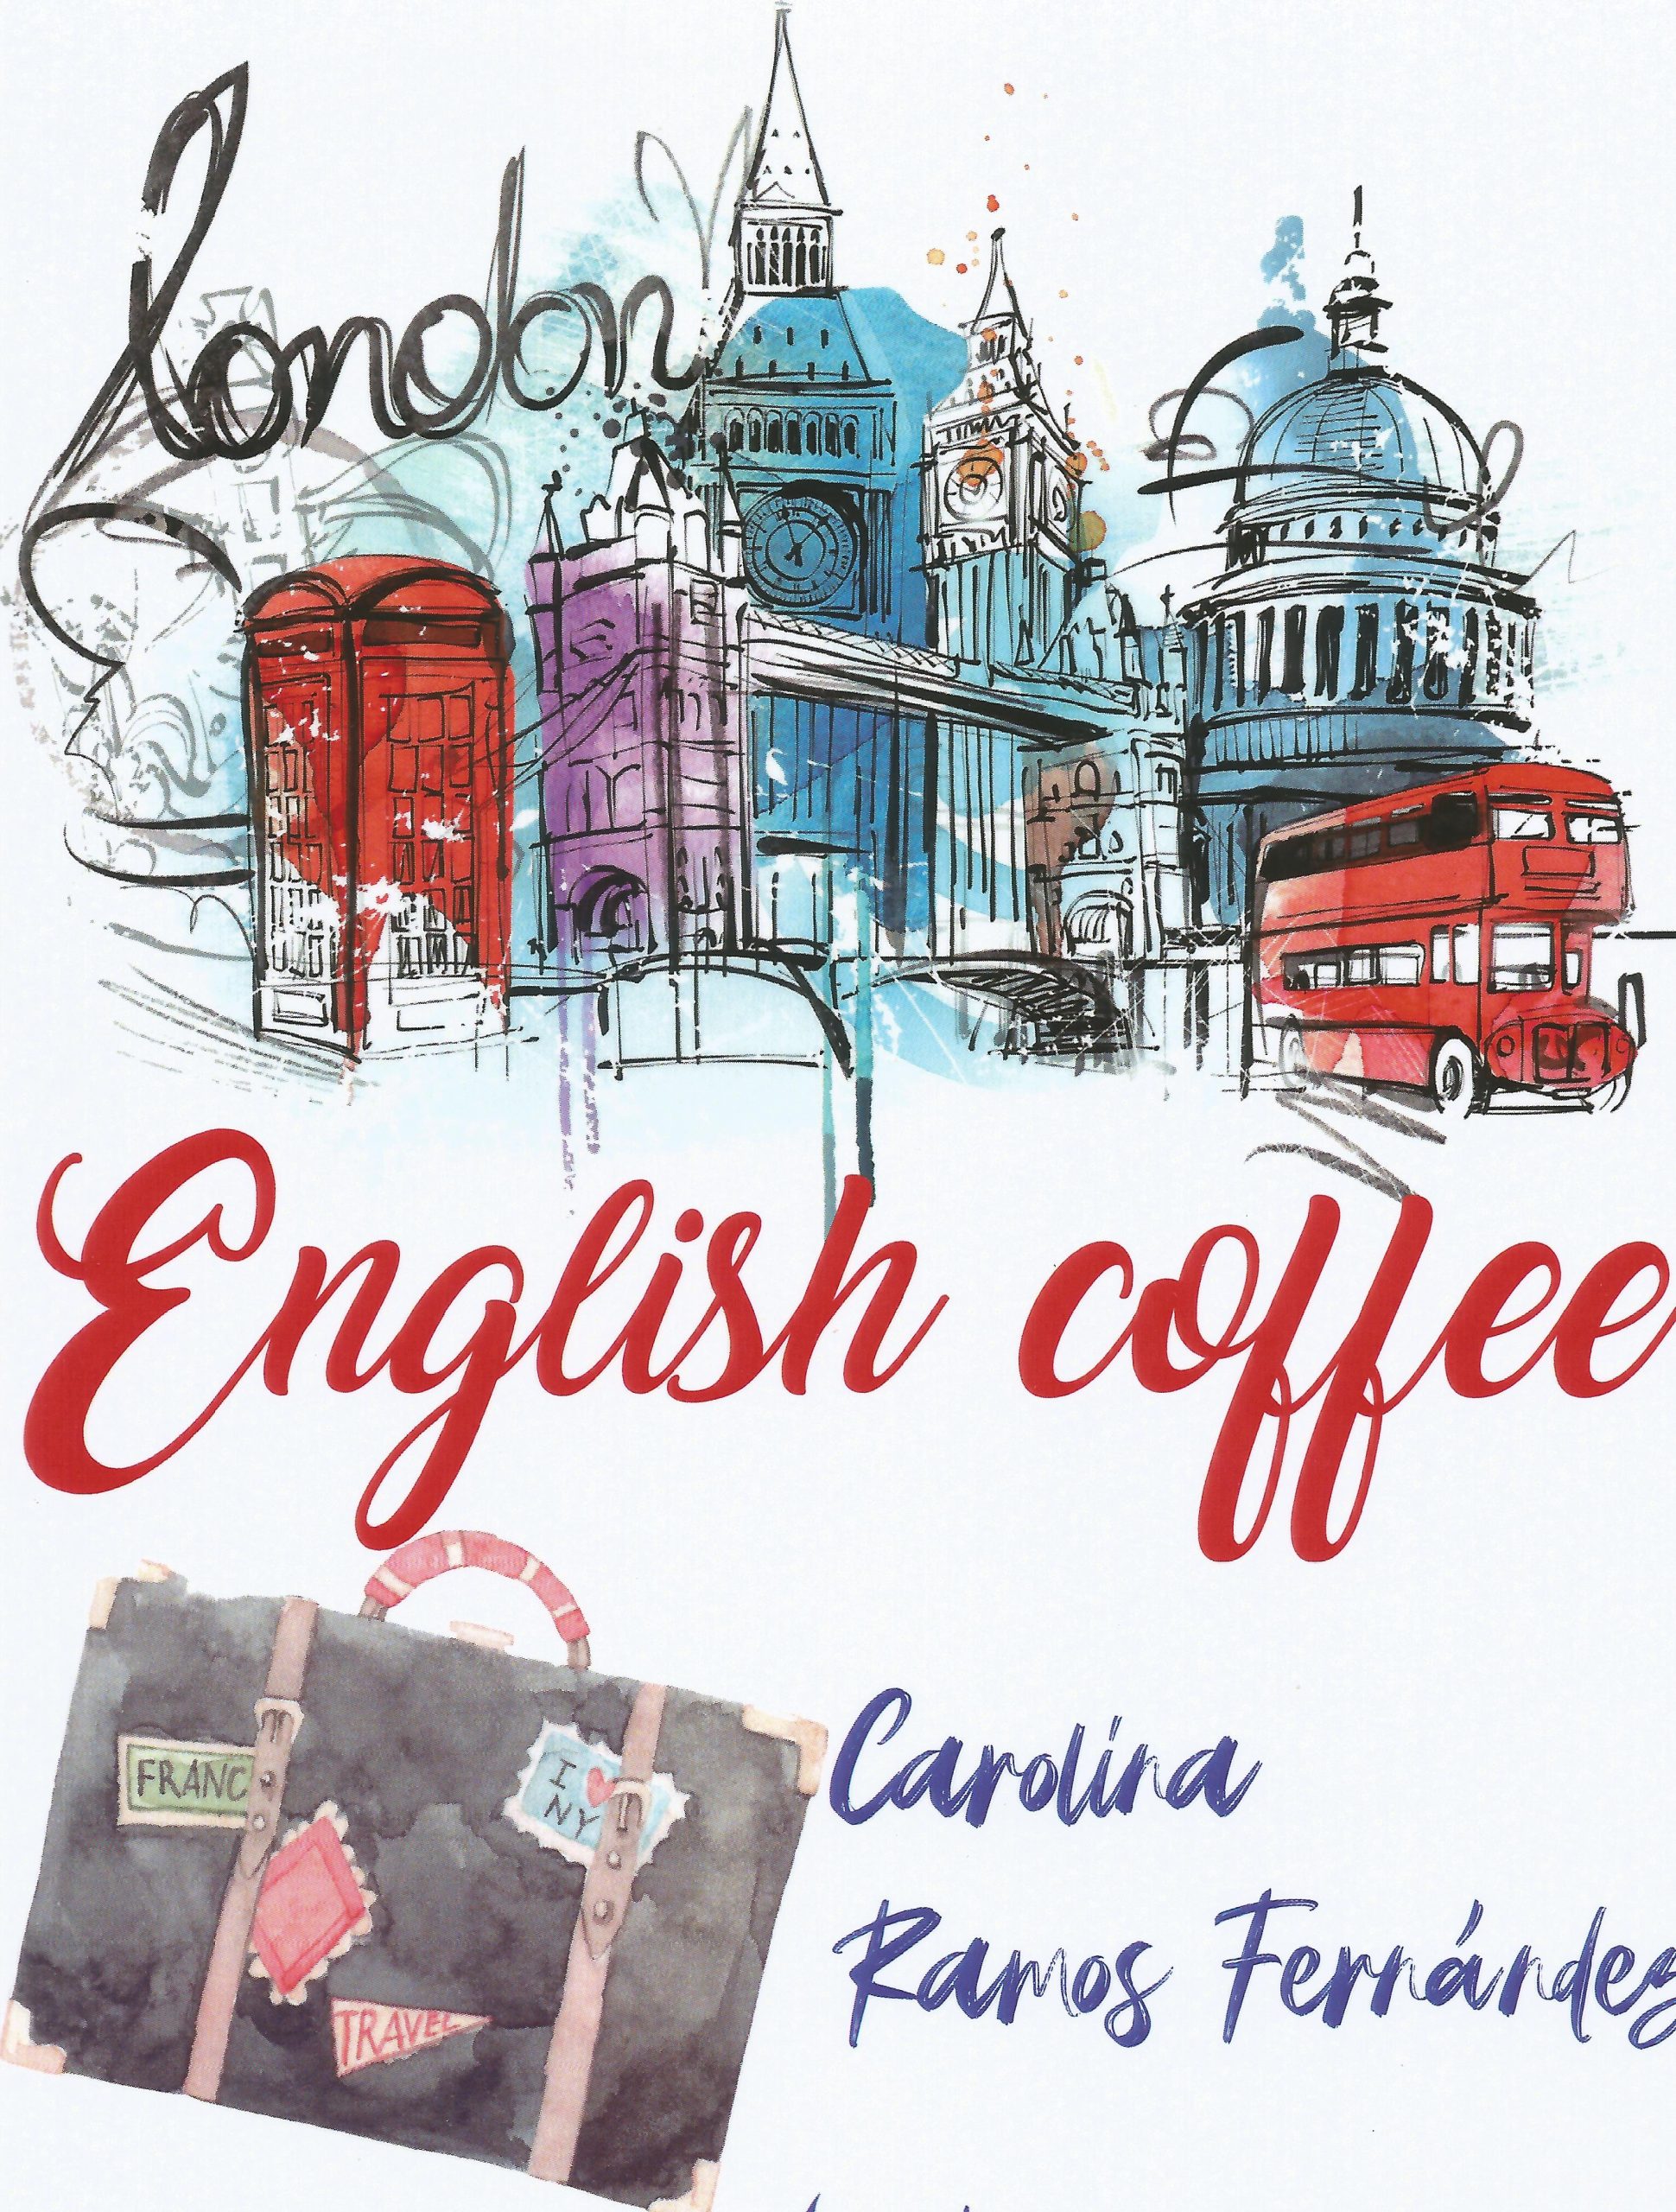 London
English coffee
FRANC
I ❤
NY
TRAVEL
Carolina
Ramos Fernández